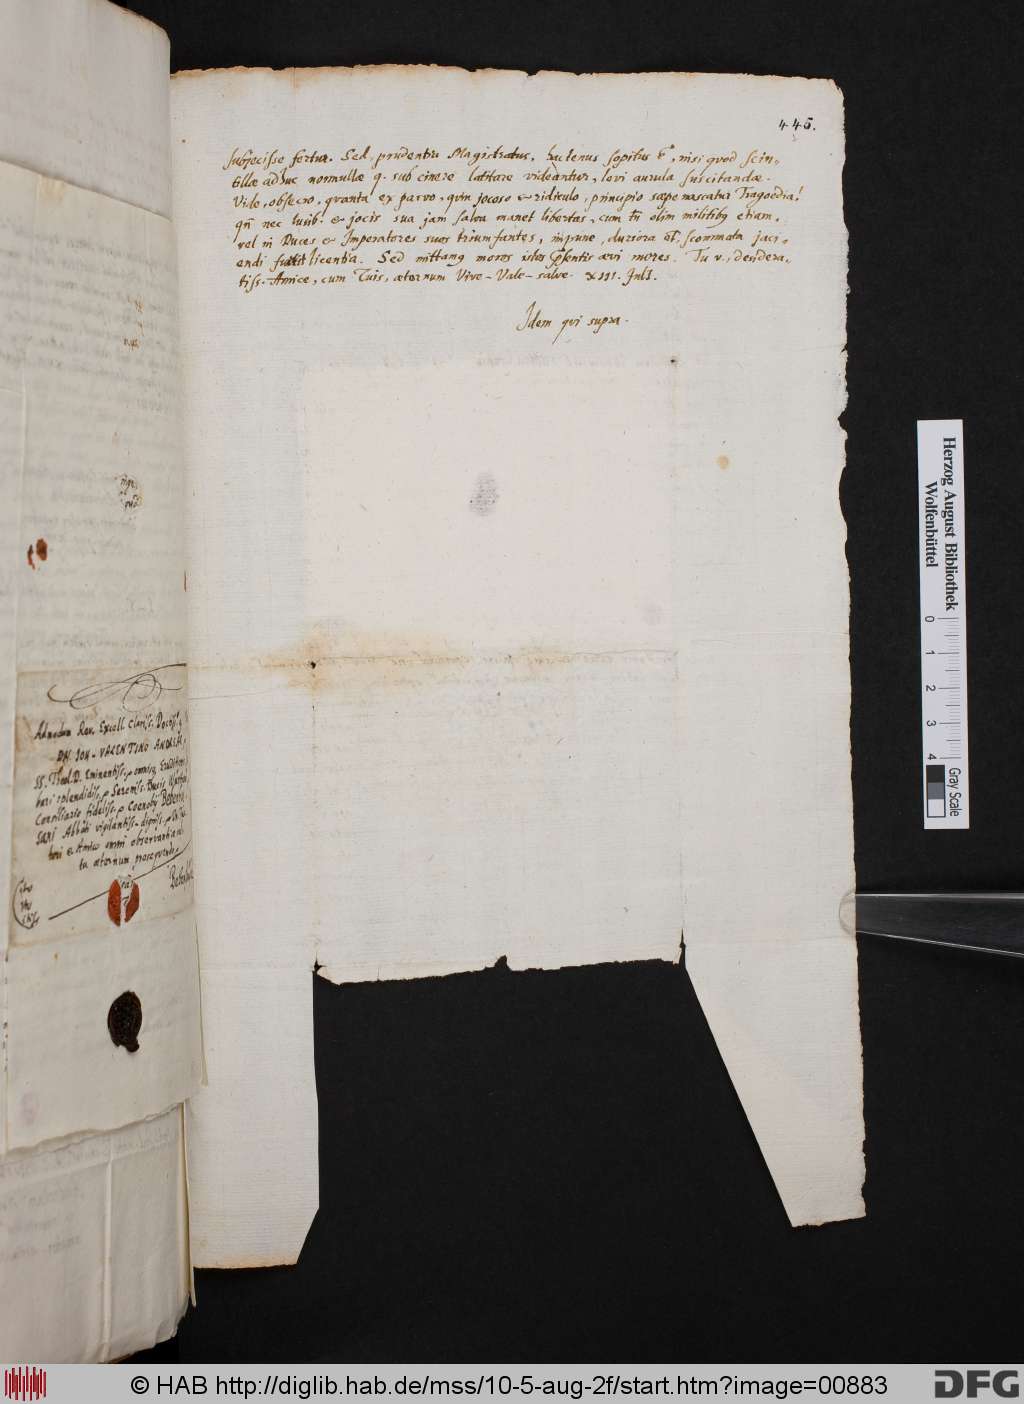 445.
subjecisse fertur. Sed, prudentia Magistratus, hactenus sopitus ē, nisi quod scin-
tillae adhuc nonnullae q. sub cinere latitare videantur, levi aurula suscitandae.
Vide, obsecro, quanta ex parvo, quin jocoso & ridiculo, principio saepe nascatur Tragoedia!
qn̄ nec lusib. & jocis sua jam salva manet libertas, cum tn̄ olim militibq etiam,
vel in Duces & Imperatores suos triumfantes, impune, duriora et, scommata jaci-
endi fuerit licentia. Sed mittamq mores istos p̄sentis aevi mores. Tu v., desidera-
tiss. Amice, cum Tuis, aeternum Vive - Vale - salve. XIII. Julī.
Idem qui supra.
Admodum Rev. Excell. Clariss. Doctiss.
DN. JOH. VALENTINO ANDREAE,
SS. Theol. D. Eminentiss.
splendidiss. Sereniss. Ducis
Consiliario fideliss. Coenobij Beben-
Abbati vigilantiss. digniss.
tori & Amico omni observantia
aeternum prosequendo.
cito
cito
Herzog August Bibliothek
Wolfenbüttel
0 1 2 3 4
Gray Scale
© HAB http://diglib.hab.de/mss/10-5-aug-2f/start.htm?image=00883
DFG